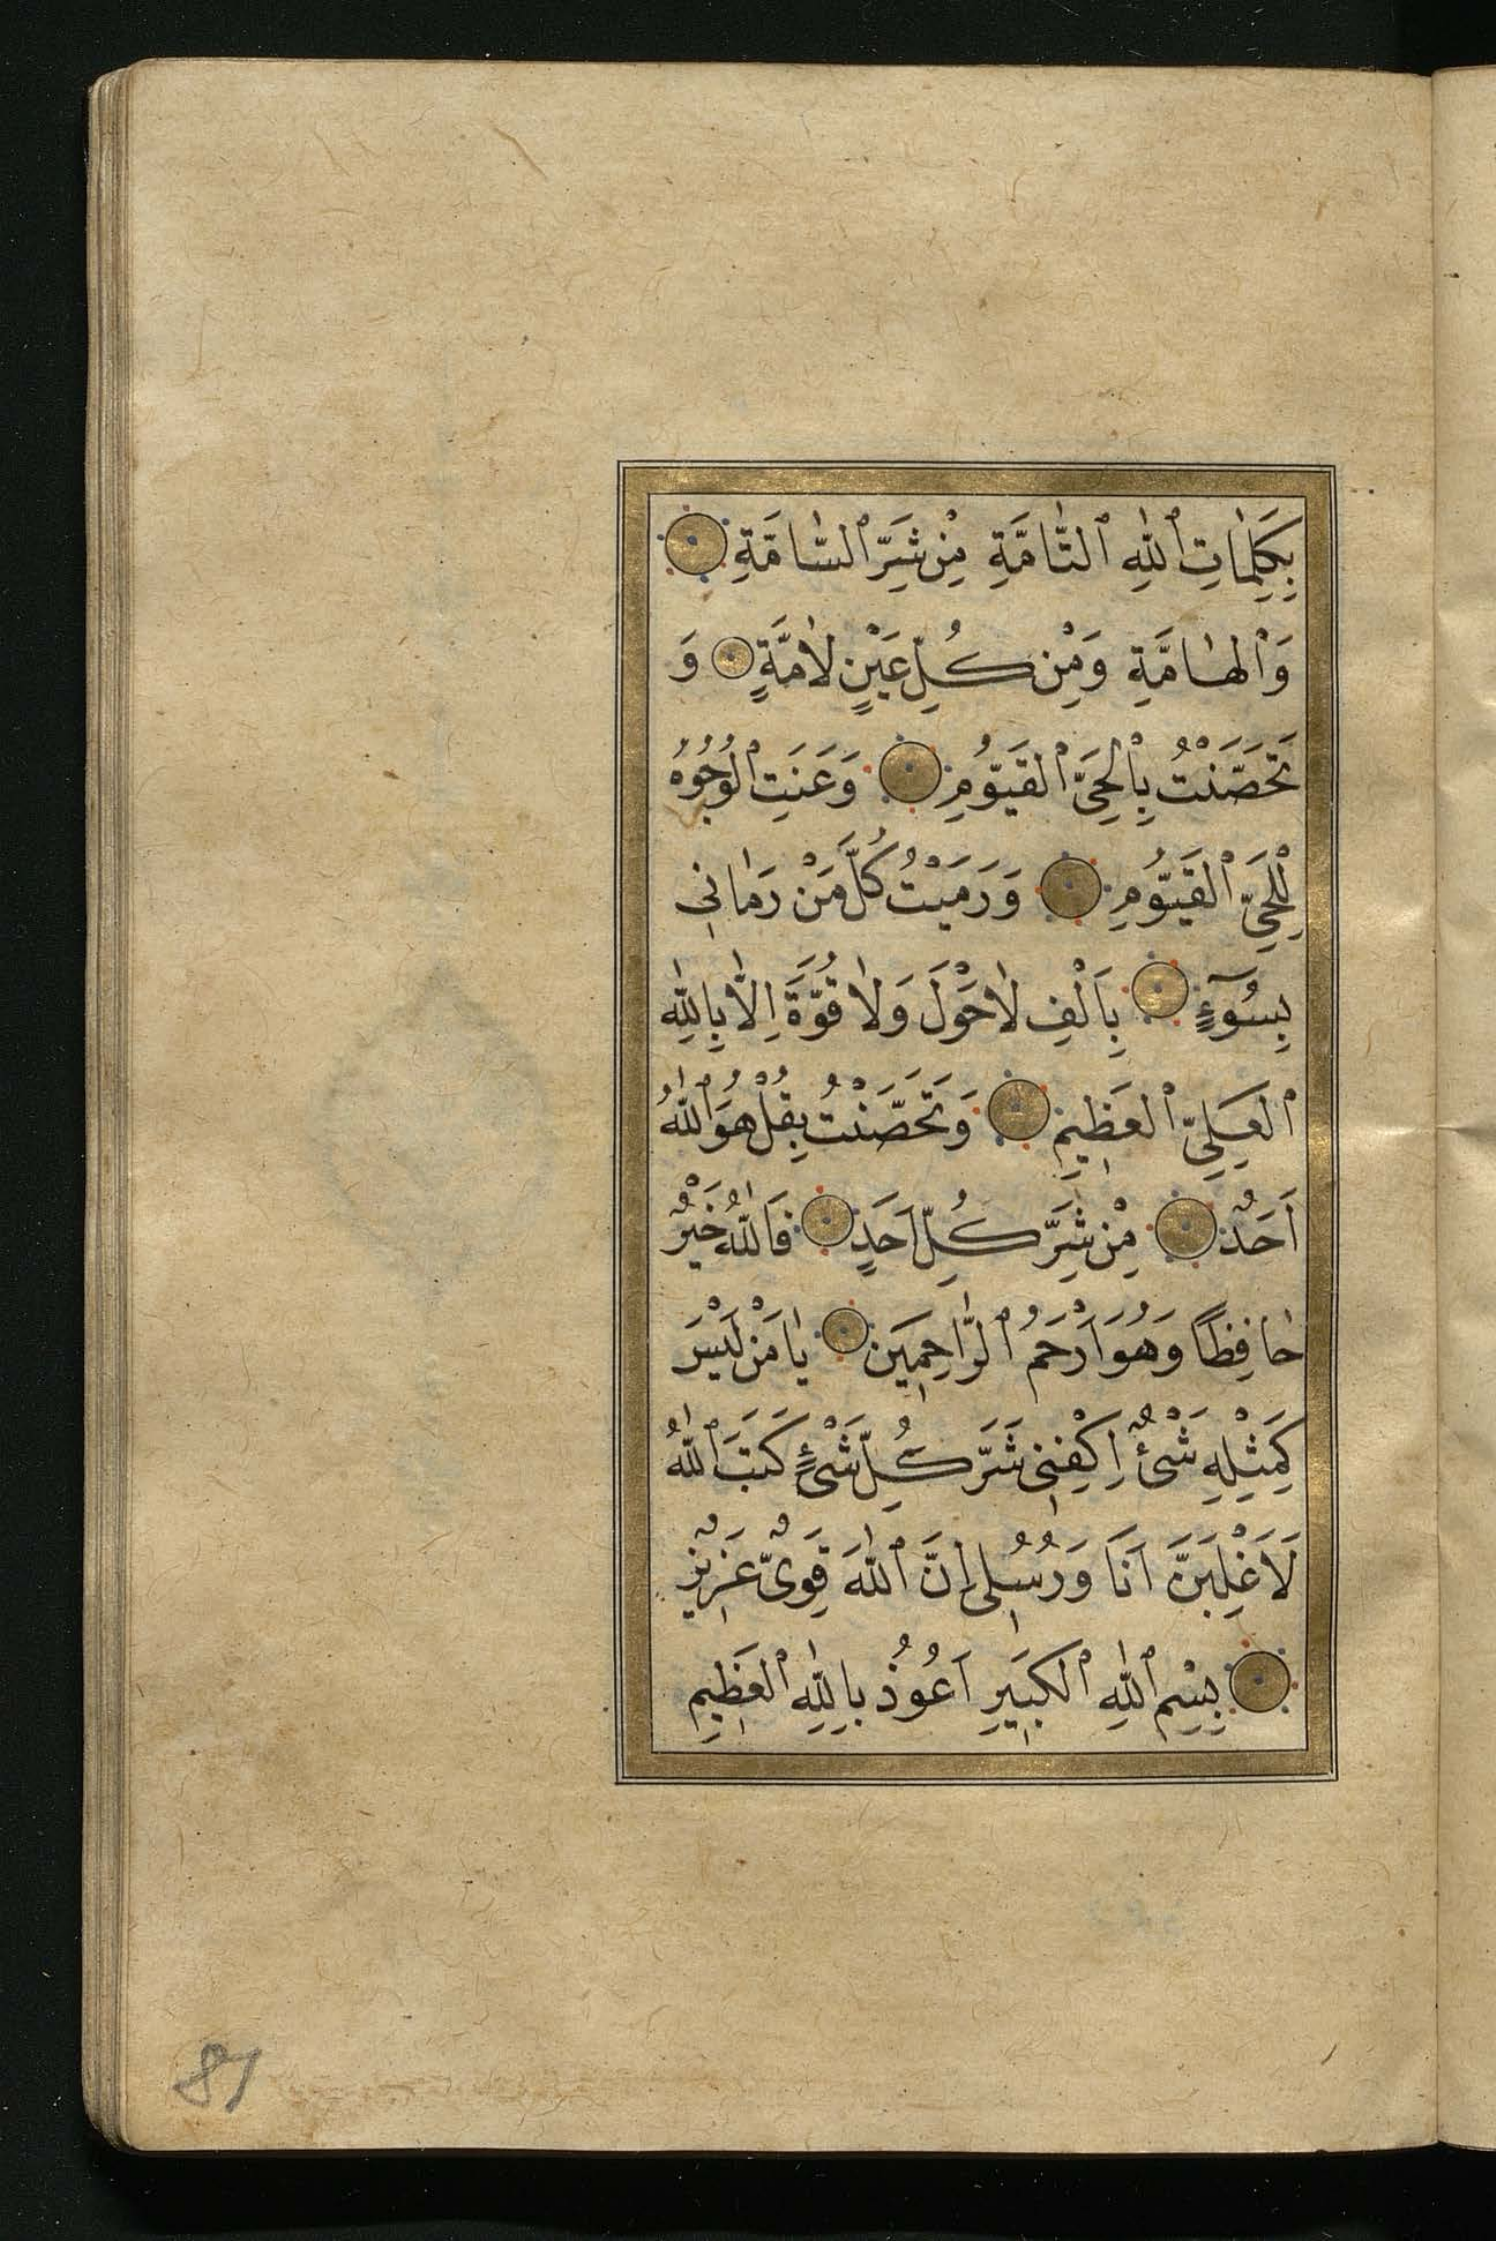 بِكَلِمَاتِ ٱللّٰهِ ٱلتَّامَّةِ مِنْ شَرِّ ٱلسَّامَّةِ
وَٱلْهَامَّةِ وَمِنْ كُلِّ عَيْنٍ لَامَّةٍ وَ
تَحَصَّنْتُ بِٱلْحَيِّ ٱلْقَيُّومِ وَعَنَتِ ٱلْوُجُوهُ
لِلْحَيِّ ٱلْقَيُّومِ وَرَمَيْتُ كُلَّ مَنْ رَمَانِي
بِسُوٓءٍ بِاَلْفِ لَاحَوْلَ وَلَا قُوَّةَ اِلَّا بِاللّٰهِ
ٱلْعَلِيِّ ٱلْعَظِيمِ وَتَحَصَّنْتُ بِقُلْ هُوَ ٱللّٰهُ
اَحَدٌ مِنْ شَرِّ كُلِّ اَحَدٍ فَاللّٰهُ خَيْرٌ
حَافِظًا وَهُوَ اَرْحَمُ ٱلرَّاحِمِينَ يَا مَنْ لَيْسَ
كَمِثْلِهِ شَيْءٌ اِكْفِنِي شَرَّ كُلِّ شَيْءٍ كَتَبَ ٱللّٰهُ
لَاَغْلِبَنَّ اَنَا وَرُسُلِي اِنَّ ٱللّٰهَ قَوِيٌّ عَزِيزٌ
بِسْمِ ٱللّٰهِ ٱلْكَبِيرِ اَعُوذُ بِاللّٰهِ ٱلْعَظِيمِ
81